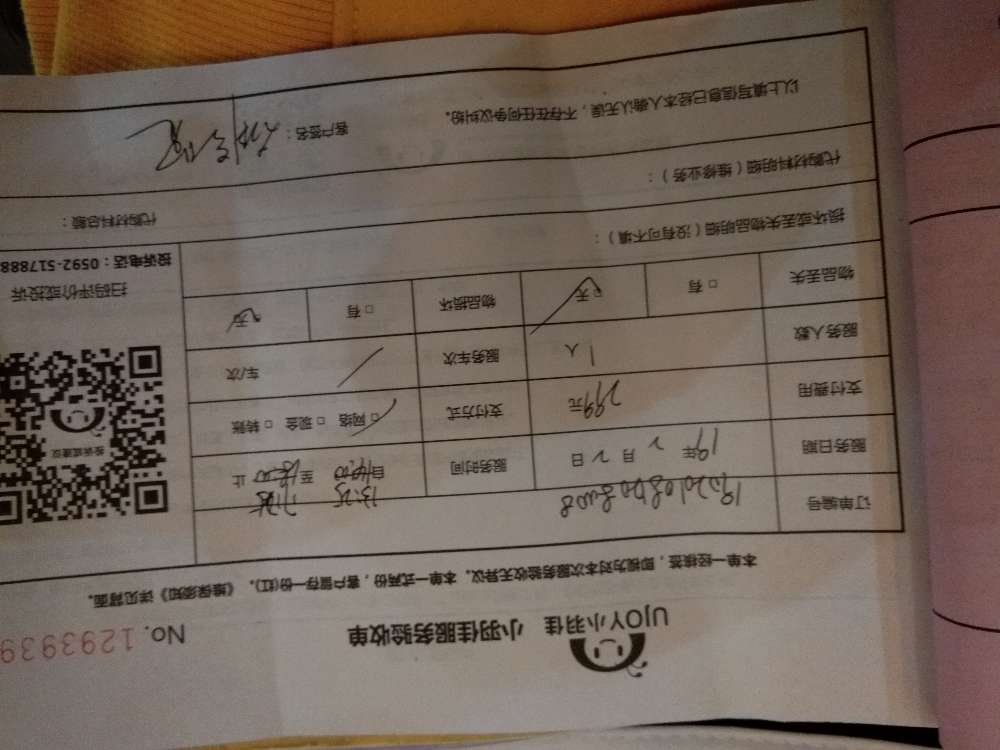 UJOY小羽佳 小羽佳服务验收单
No. 1293939
本单一经核签,即视为对本次服务验收无异议。本单一式两份,客户留存一份(红)。《维保须知》详见背面。
订单编号
服务日期 19年 2 月 2 日 服务时间 自14:00 至 18:00 止
支付费用 299元 支付方式 □ 网络 □ 现金 □ 转账
服务人数 1人 服务车次 车/次
物品丢失 □ 有 □ 无 物品损坏 □ 有 □ 无
投诉或建议
扫码评价或投诉
投诉电话:0592-517888
损坏或丢失物品明细(没有可不填):
代购材料明细(维修业务): 代购材料总额:
以上填写信息已经本人确认无误,不存在任何争议纠纷。 客户签名: